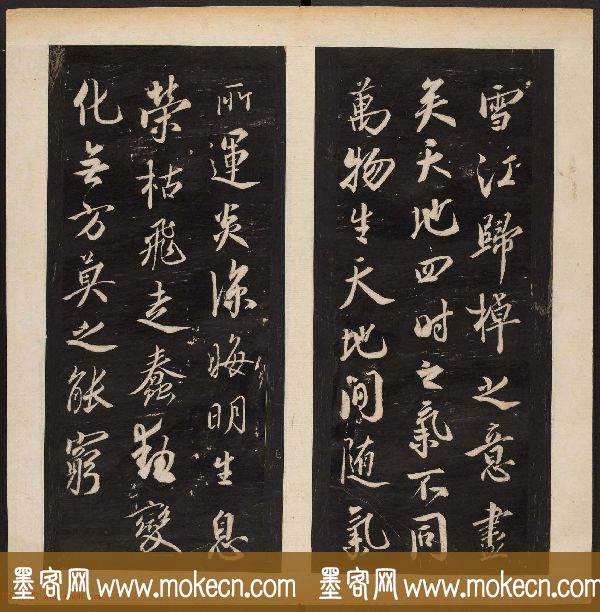 雪江歸棹之意盡
矣天地四時之氣不同
萬物生天地間隨氣
所運炎涼晦明生息
榮枯飛走蠢動變
化無方莫之能窮
墨客网 www.mokecn.com 墨客网 www.mokecn.com